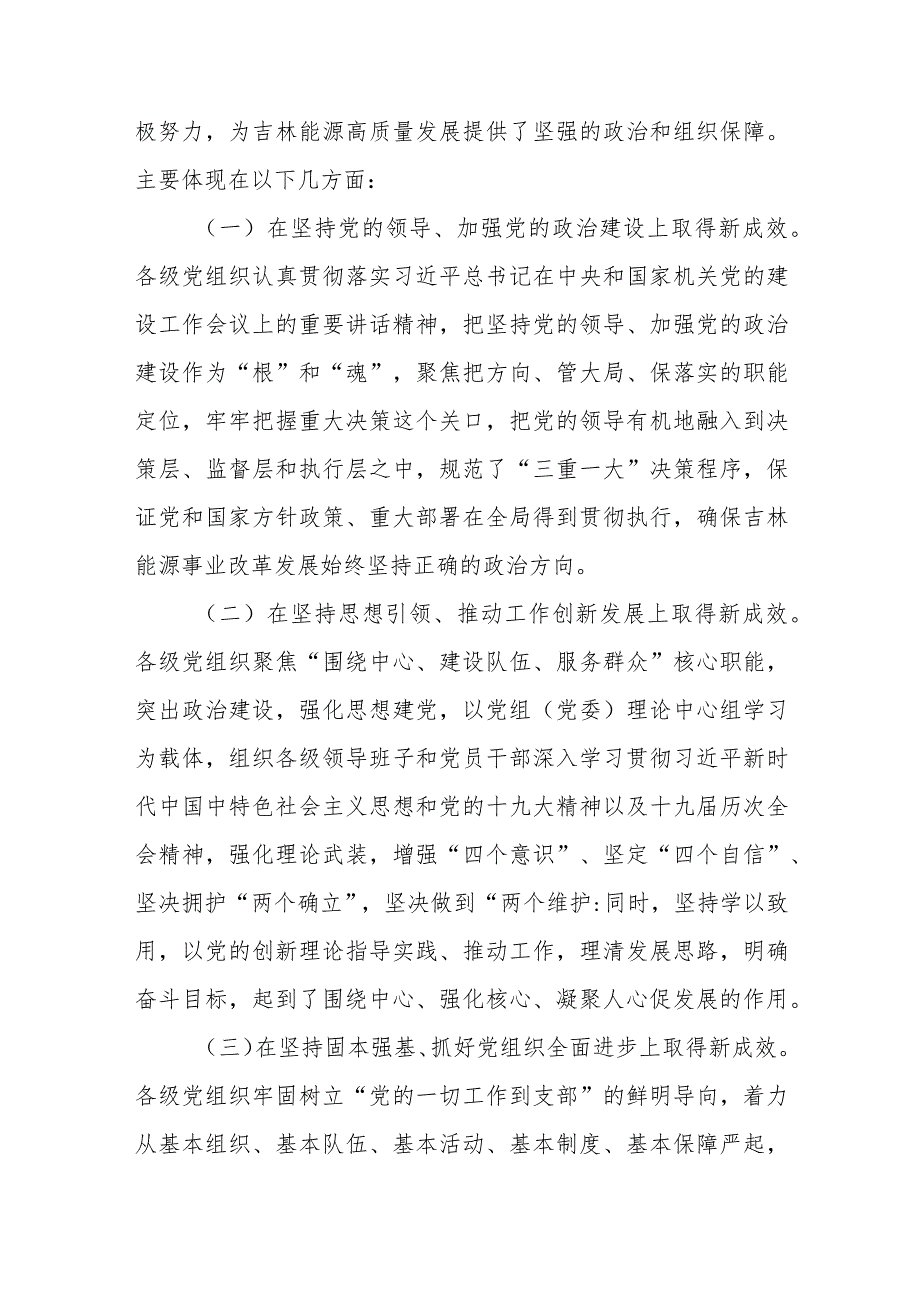 极努力，为吉林能源高质量发展提供了坚强的政治和组织保障。
主要体现在以下几方面：
（一）在坚持党的领导、加强党的政治建设上取得新成效。
各级党组织认真贯彻落实习近平总书记在中央和国家机关党的建
设工作会议上的重要讲话精神，把坚持党的领导、加强党的政治
建设作为“根”和“魂”，聚焦把方向、管大局、保落实的职能
定位，牢牢把握重大决策这个关口，把党的领导有机地融入到决
策层、监督层和执行层之中，规范了“三重一大”决策程序，保
证党和国家方针政策、重大部署在全局得到贯彻执行，确保吉林
能源事业改革发展始终坚持正确的政治方向。
（二）在坚持思想引领、推动工作创新发展上取得新成效。
各级党组织聚焦“围绕中心、建设队伍、服务群众”核心职能，
突出政治建设，强化思想建党，以党组（党委）理论中心组学习
为载体，组织各级领导班子和党员干部深入学习贯彻习近平新时
代中国中特色社会主义思想和党的十九大精神以及十九届历次全
会精神，强化理论武装，增强“四个意识”、坚定“四个自信”、
坚决拥护“两个确立”，坚决做到“两个维护:同时，坚持学以致
用，以党的创新理论指导实践、推动工作，理清发展思路，明确
奋斗目标，起到了围绕中心、强化核心、凝聚人心促发展的作用。
（三）在坚持固本强基、抓好党组织全面进步上取得新成效。
各级党组织牢固树立“党的一切工作到支部”的鲜明导向，着力
从基本组织、基本队伍、基本活动、基本制度、基本保障严起，